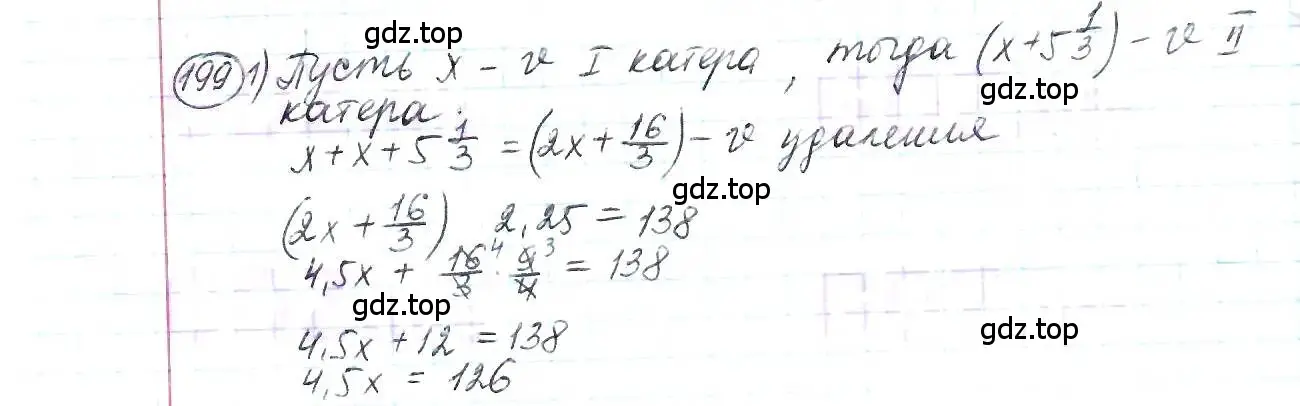 gdz.top
199 1) Пусть x – v I катера, тогда (x+5 1/3) – v II
gdz.top
катера.
x + x + 5 1/3 = (2x + 16/3) – v удаления
gdz.top
gdz.top
(2x + 16/3) 2,25 = 138
4,5x + 16/3 ⁴ · 9/4 ³ = 138
gdz.top
gdz.top
4,5x + 12 = 138
4,5x = 126